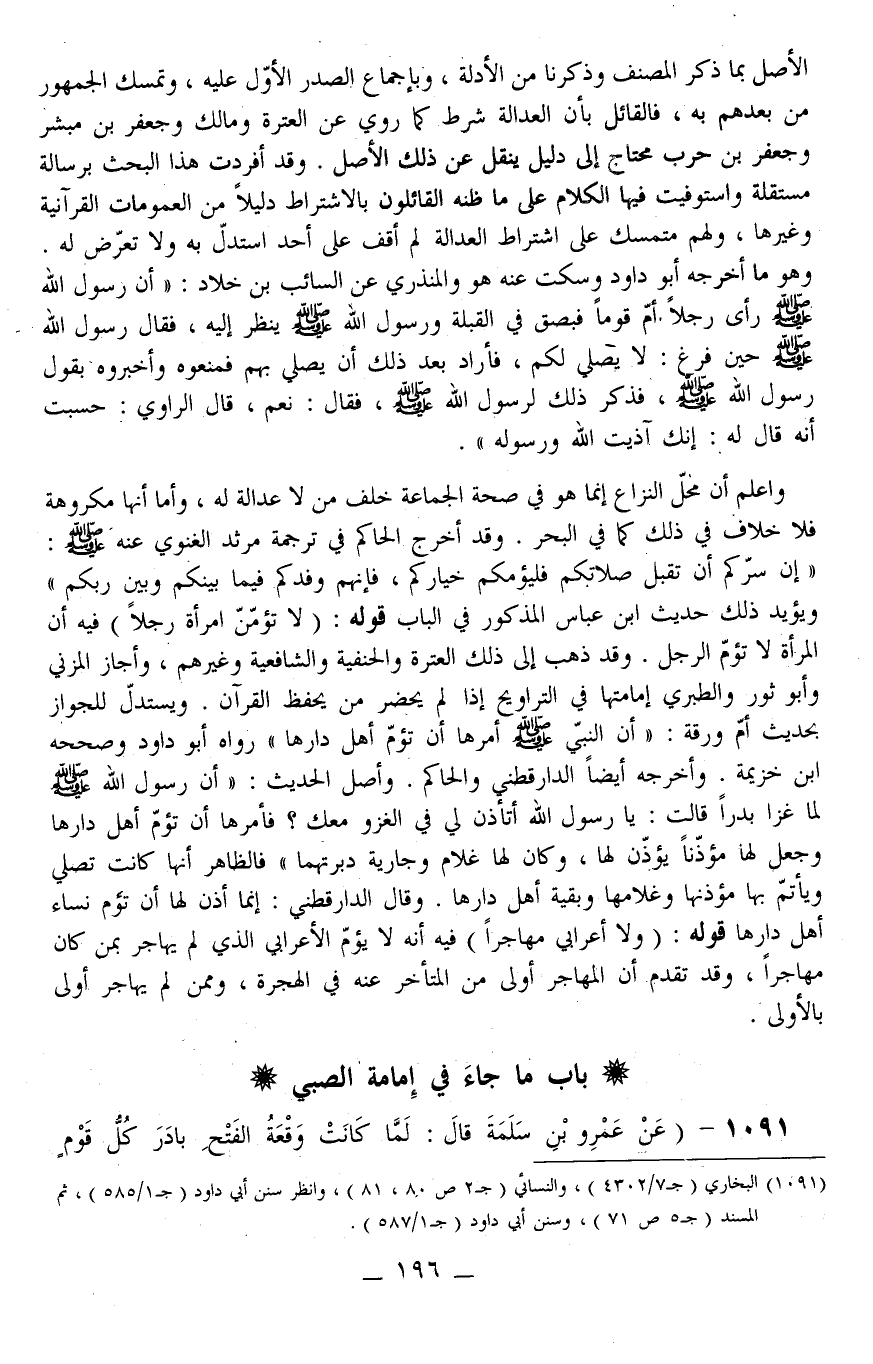 الأصل بما ذكر المصنف وذكرنا من الأدلة ، وبإجماع الصدر الأوّل عليه ، وتمسك الجمهور
من بعدهم به ، فالقائل بأن العدالة شرط كما روي عن العترة ومالك وجعفر بن مبشر
وجعفر بن حرب محتاج إلى دليل ينقل عن ذلك الأصل . وقد أفردت هذا البحث برسالة
مستقلة واستوفيت فيها الكلام على ما ظنه القائلون بالاشتراط دليلاً من العمومات القرآنية
وغيرها ، ولهم متمسك على اشتراط العدالة لم أقف على أحد استدلّ به ولا تعرّض له .
وهو ما أخرجه أبو داود وسكت عنه هو والمنذري عن السائب بن خلاد : « أن رسول الله
ﷺ رأى رجلاً أمّ قوماً فبصق في القبلة ورسول الله ﷺ ينظر إليه ، فقال رسول الله
ﷺ حين فرغ : لا يصلي لكم ، فأراد بعد ذلك أن يصلي بهم فمنعوه وأخبروه بقول
رسول الله ﷺ ، فذكر ذلك لرسول الله ﷺ ، فقال : نعم ، قال الراوي : حسبت
أنه قال له : إنك آذيت الله ورسوله » .
واعلم أن محلّ النزاع إنما هو في صحة الجماعة خلف من لا عدالة له ، وأما أنها مكروهة
فلا خلاف في ذلك كما في البحر . وقد أخرج الحاكم في ترجمة مرثد الغنوي عنه ﷺ :
« إن سرّكم أن تقبل صلاتكم فليؤمكم خياركم ، فإنهم وفدكم فيما بينكم وبين ربكم »
ويؤيد ذلك حديث ابن عباس المذكور في الباب قوله : ( لا تؤمّنّ امرأة رجلاً ) فيه أن
المرأة لا تؤمّ الرجل . وقد ذهب إلى ذلك العترة والحنفية والشافعية وغيرهم ، وأجاز المزني
وأبو ثور والطبري إمامتها في التراويح إذا لم يحضر من يحفظ القرآن . ويستدلّ للجواز
بحديث أمّ ورقة : « أن النبيّ ﷺ أمرها أن تؤمّ أهل دارها » رواه أبو داود وصححه
ابن خزيمة . وأخرجه أيضاً الدارقطني والحاكم . وأصل الحديث : « أن رسول الله ﷺ
لما غزا بدراً قالت : يا رسول الله أتأذن لي في الغزو معك ؟ فأمرها أن تؤمّ أهل دارها
وجعل لها مؤذّناً يؤذّن لها ، وكان لها غلام وجارية دبرتهما » فالظاهر أنها كانت تصلي
ويأتمّ بها مؤذنها وغلامها وبقية أهل دارها . وقال الدارقطني : إنما أذن لها أن تؤم نساء
أهل دارها قوله : ( ولا أعرابي مهاجراً ) فيه أنه لا يؤمّ الأعرابي الذي لم يهاجر بمن كان
مهاجراً ، وقد تقدم أن المهاجر أولى من المتأخر عنه في الهجرة ، وممن لم يهاجر أولى
بالأولى .
باب ما جاءَ في إمامة الصبي
١٠٩١ - ( عَنْ عَمْرِو بْنِ سَلَمَةَ قالَ : لَمَّا كَانَتْ وَقْعَةُ الفَتْحِ بادَرَ كُلُّ قَوْمٍ
(١٠٩١) البخاري ( جـ٤٣٠٢/٧ ) ، والنسائي ( جـ٢ ص ٨٠ ، ٨١ ) ، وانظر سنن أبي داود ( جـ٥٨٥/١ ) ، ثم
المسند ( جـ٥ ص ٧١ ) ، وسنن أبي داود ( جـ٥٨٧/١ ) .
_ ١٩٦ _